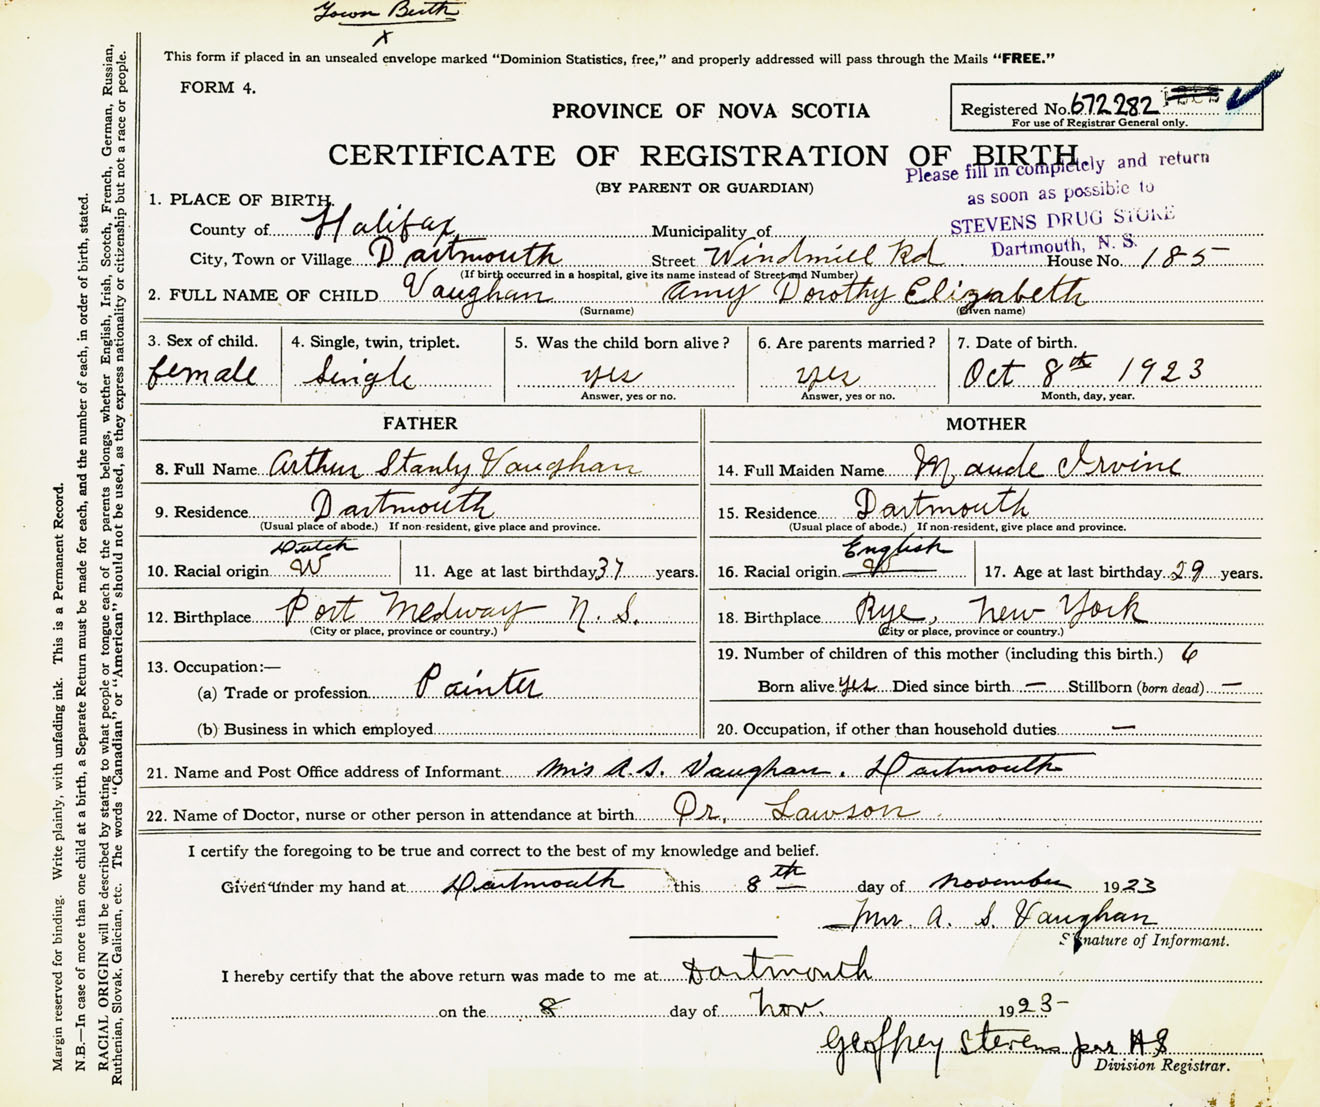 Town Birth
x
This form if placed in an unsealed envelope marked "Dominion Statistics, free," and properly addressed will pass through the Mails "FREE."
FORM 4.
PROVINCE OF NOVA SCOTIA
Registered No. 672282
For use of Registrar General only.
CERTIFICATE OF REGISTRATION OF BIRTH
(BY PARENT OR GUARDIAN)
Please fill in completely and return
as soon as possible to
STEVENS DRUG STORE
Dartmouth, N. S.
1. PLACE OF BIRTH.
County of Halifax Municipality of
City, Town or Village Dartmouth Street Windmill Rd House No. 185
(If birth occurred in a hospital, give its name instead of Street and Number)
2. FULL NAME OF CHILD Vaughan Amy Dorothy Elizabeth
(Surname) (Given name)
3. Sex of child. 4. Single, twin, triplet. 5. Was the child born alive? 6. Are parents married? 7. Date of birth.
female Single yes yes Oct 8th 1923
Answer, yes or no. Answer, yes or no. Month, day, year.
FATHER MOTHER
8. Full Name Arthur Stanly Vaughan 14. Full Maiden Name Maude Irvine
9. Residence Dartmouth 15. Residence Dartmouth
(Usual place of abode.) If non-resident, give place and province. (Usual place of abode.) If non-resident, give place and province.
Dutch English
10. Racial origin W 11. Age at last birthday 37 years. 16. Racial origin W 17. Age at last birthday 29 years.
12. Birthplace Port Medway N. S. 18. Birthplace Rye, New York
(City or place, province or country.) (City or place, province or country.)
13. Occupation:— 19. Number of children of this mother (including this birth.) 6
(a) Trade or profession Painter Born alive yes Died since birth — Stillborn (born dead) —
(b) Business in which employed 20. Occupation, if other than household duties —
21. Name and Post Office address of Informant Mrs A. S. Vaughan. Dartmouth
22. Name of Doctor, nurse or other person in attendance at birth Dr. Lawson
I certify the foregoing to be true and correct to the best of my knowledge and belief.
Given under my hand at Dartmouth this 8th day of November 1923
Mrs A. S. Vaughan
Signature of Informant.
I hereby certify that the above return was made to me at Dartmouth
on the 8 day of Nov. 1923
Geoffrey Stevens per HS
Division Registrar.
Margin reserved for binding. Write plainly, with unfading ink. This is a Permanent Record.
N.B.—In case of more than one child at a birth, a Separate Return must be made for each, and the number of each, in order of birth, stated.
RACIAL ORIGIN will be described by stating to what people or tongue each of the parents belongs, whether English, Irish, Scotch, French, German, Russian,
Ruthenian, Slovak, Galician, etc. The words "Canadian" or "American" should not be used, as they express nationality or citizenship but not a race or people.